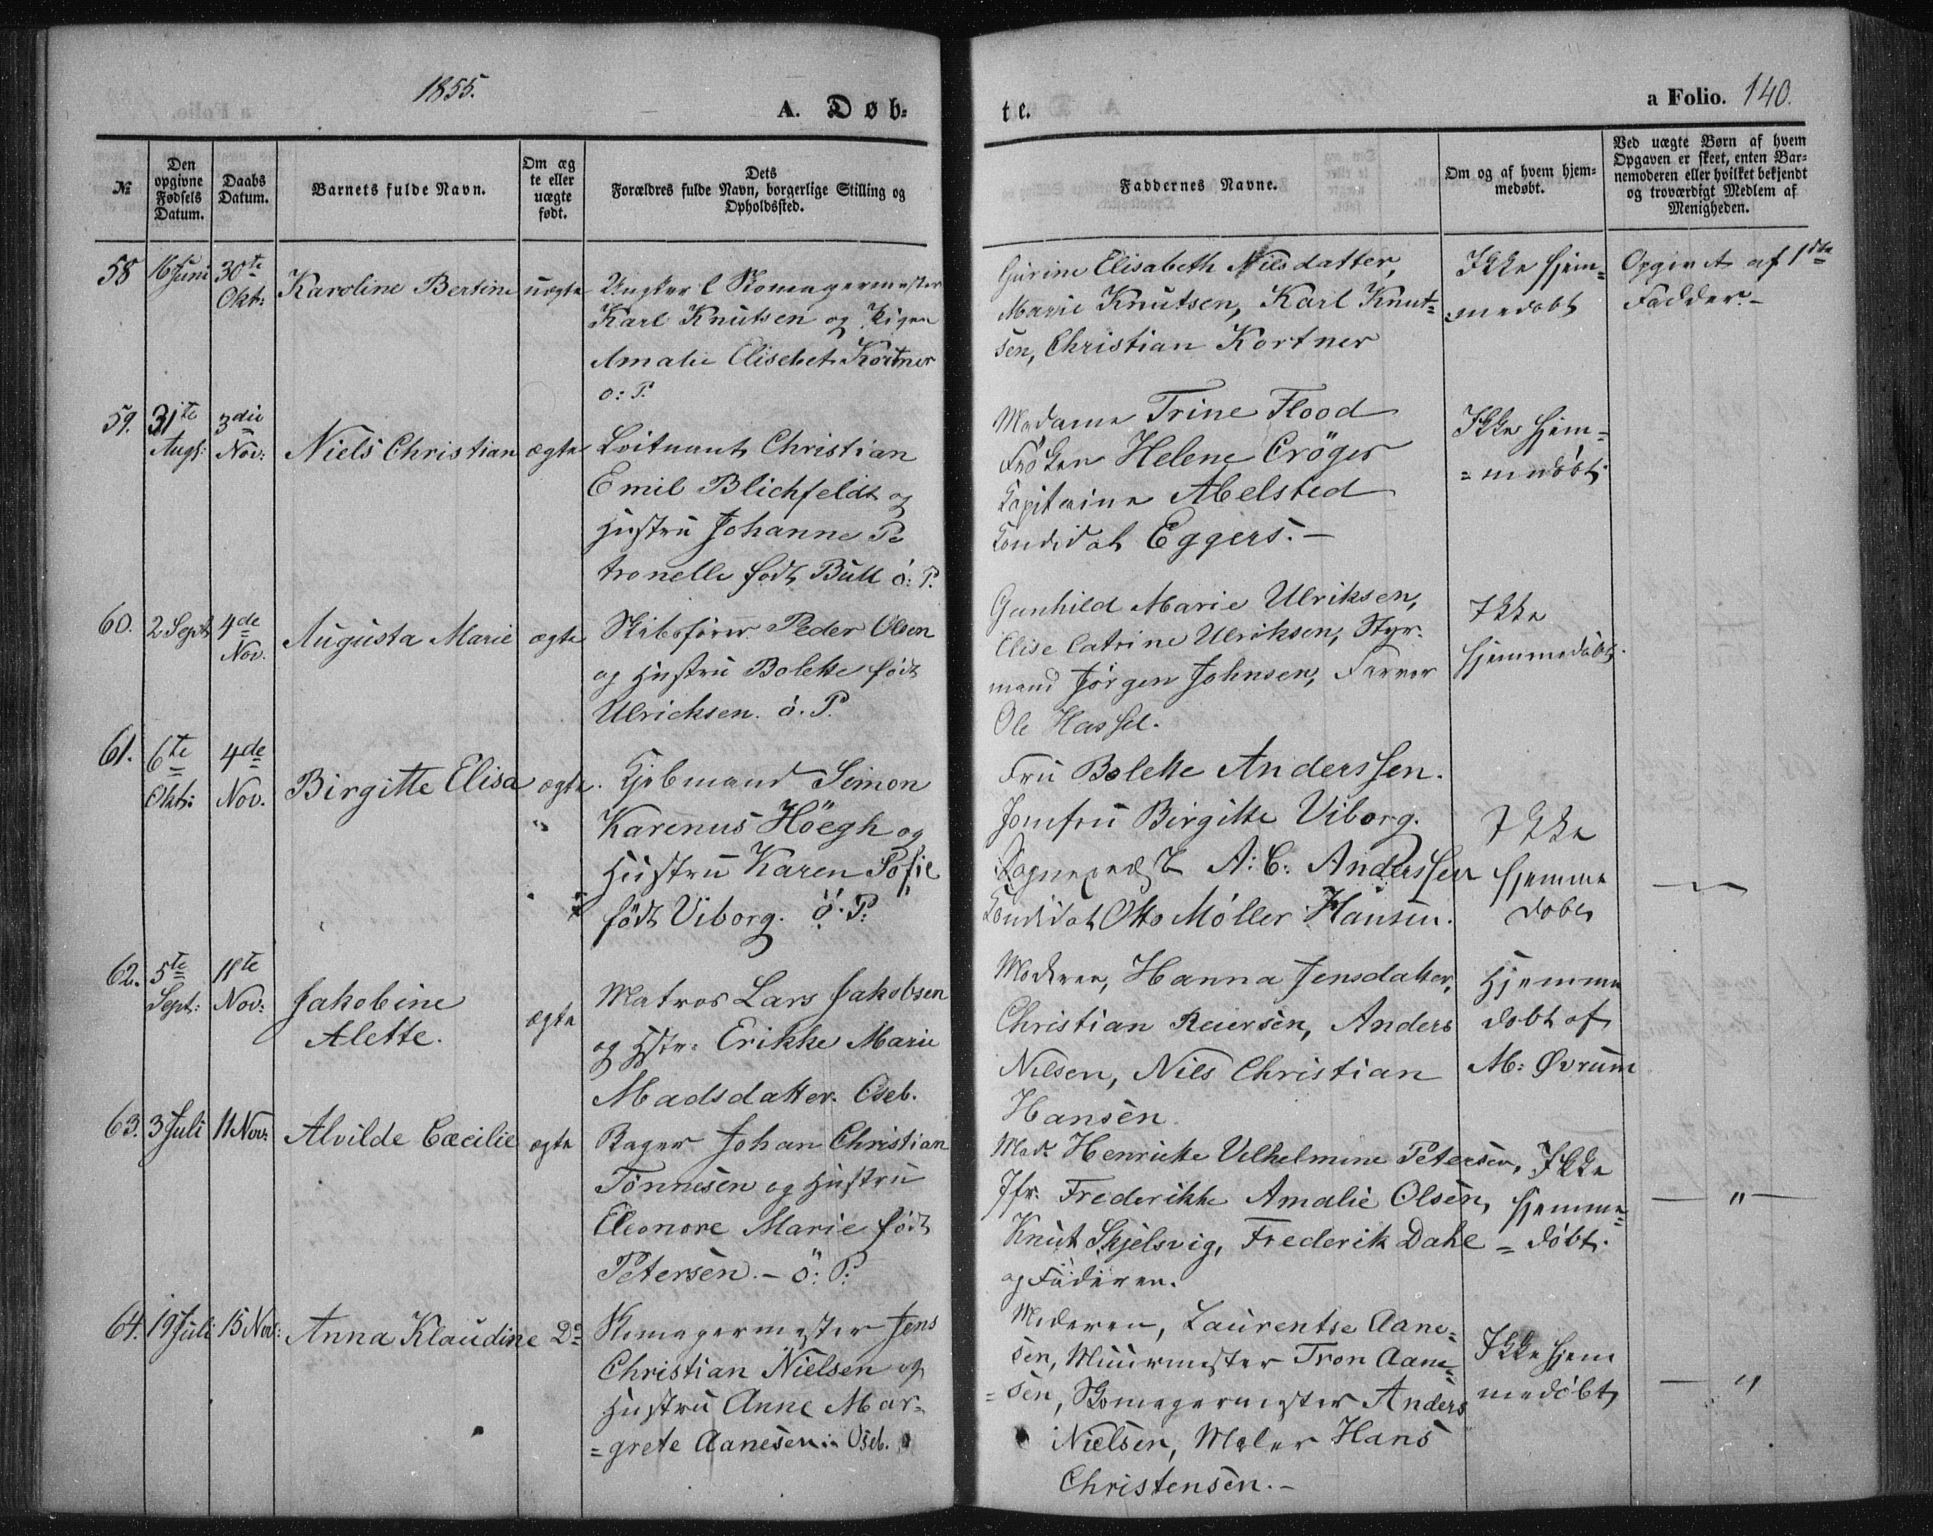 1855.
A. Døb=
te.
a Folio. 140.
№
Den opgivne Fødsels Datum.
Daabs Datum.
Barnets fulde Navn.
Om æg te eller uægte født.
Dets
Forældres fulde Navn, borgerlige Stilling og
Opholdssted.
Faddernes Navne.
Om og af hvem hjem=
medøbt.
Ved uægte Børn af hvem
Opgaven er skeet, enten Bar=
nemoderen eller hvilket bekjendt
og troværdigt Medlem af
Menigheden.
58 16 Juni 30te Okt: Karoline Bertine uægte
Ungkarl Skomagermester
Karl Knutsen og Pigen
Amalie Elisebet Kortner
ö: P.
Gurine Elisabeth Nilsdatter,
Marie Knutsen, Karl Knut=
sen, Christian Kortner
Ikke hjem=
medøbt
Opgivet af 1ste
Fadder.—
59. 31te Augs: 3die Nov: Niels Christian ægte
Løitnant Christian
Emil Blichfeldt og
Hustru Johanne Pe
tronelle født Bull ö: P.
Madame Trine Flood
Frøken Helene Cröger
Kapitaine Abelsted
Kandidat Eggers.—
Ikke hjem=
=medøbt.
60. 2 Sept 4de Nov. Augusta Marie ægte
Skibsfører Peder Olsen
og Hustru Bolette født
Ulricksen. ö. P.
Gunhild Marie Ulriksen,
Elise Catrine Ulriksen, Styr=
mand Jörgen Johnsen, Farver
Ole Hassel.
Ikke
hjemmedøbt.
61. 6te Okt: 4de Nov. Birgitte Elisa ægte.
Kjøbmand Simon
Karenus Höegh og
Hustru Karen Sofie
født Viborg. ö: P:
Fru Bolette Anderssen.
Jomfru Birgitte Viborg.
Sognepræst A: C. Anderssen
Kandidat Otto Møller Hansen.
Ikke
hjemme
døbt
62. 5te Sept: 11te Nov: Jakobine
Alette. ægte
Matros Lars Jakobsen
og Hstr: Erikke Marie
Madsdatter. Oseb.
Moderen, Hanna Jensdatter,
Christian Reiersen, Anders
Nilsen, Nils Christian
Hansen.
Hjemme
døbt af
M: Øvrum
63. 3 Juli 11 Nov: Alvilde Cæcilie ægte
Bager Johan Christian
Tönnesen og Hustru
Eleonore Marie født
Petersen.— Ö: P:
Mad. Henriette Vilhelmine Petersen,
Jfr. Frederikke Amalie Olsen,
Knut Skjelsvig, Frederik Dahl
og Faderen.
Ikke
hjemme=
=døbt.
— " —
64. 19 Juli 15 Nov: Anna Klaudine Do
Skomagermester Jens
Christian Nielsen og
Hustru Anne Mar=
=grete Aanesen. Oseb.
Moderen, Laurentse Aane=
sen, Muurmester Tron Aane=
=sen, Skomagermester Anders
Nielsen, Maler Hans
Christensen.—
Ikke hjem
medøbt
— "